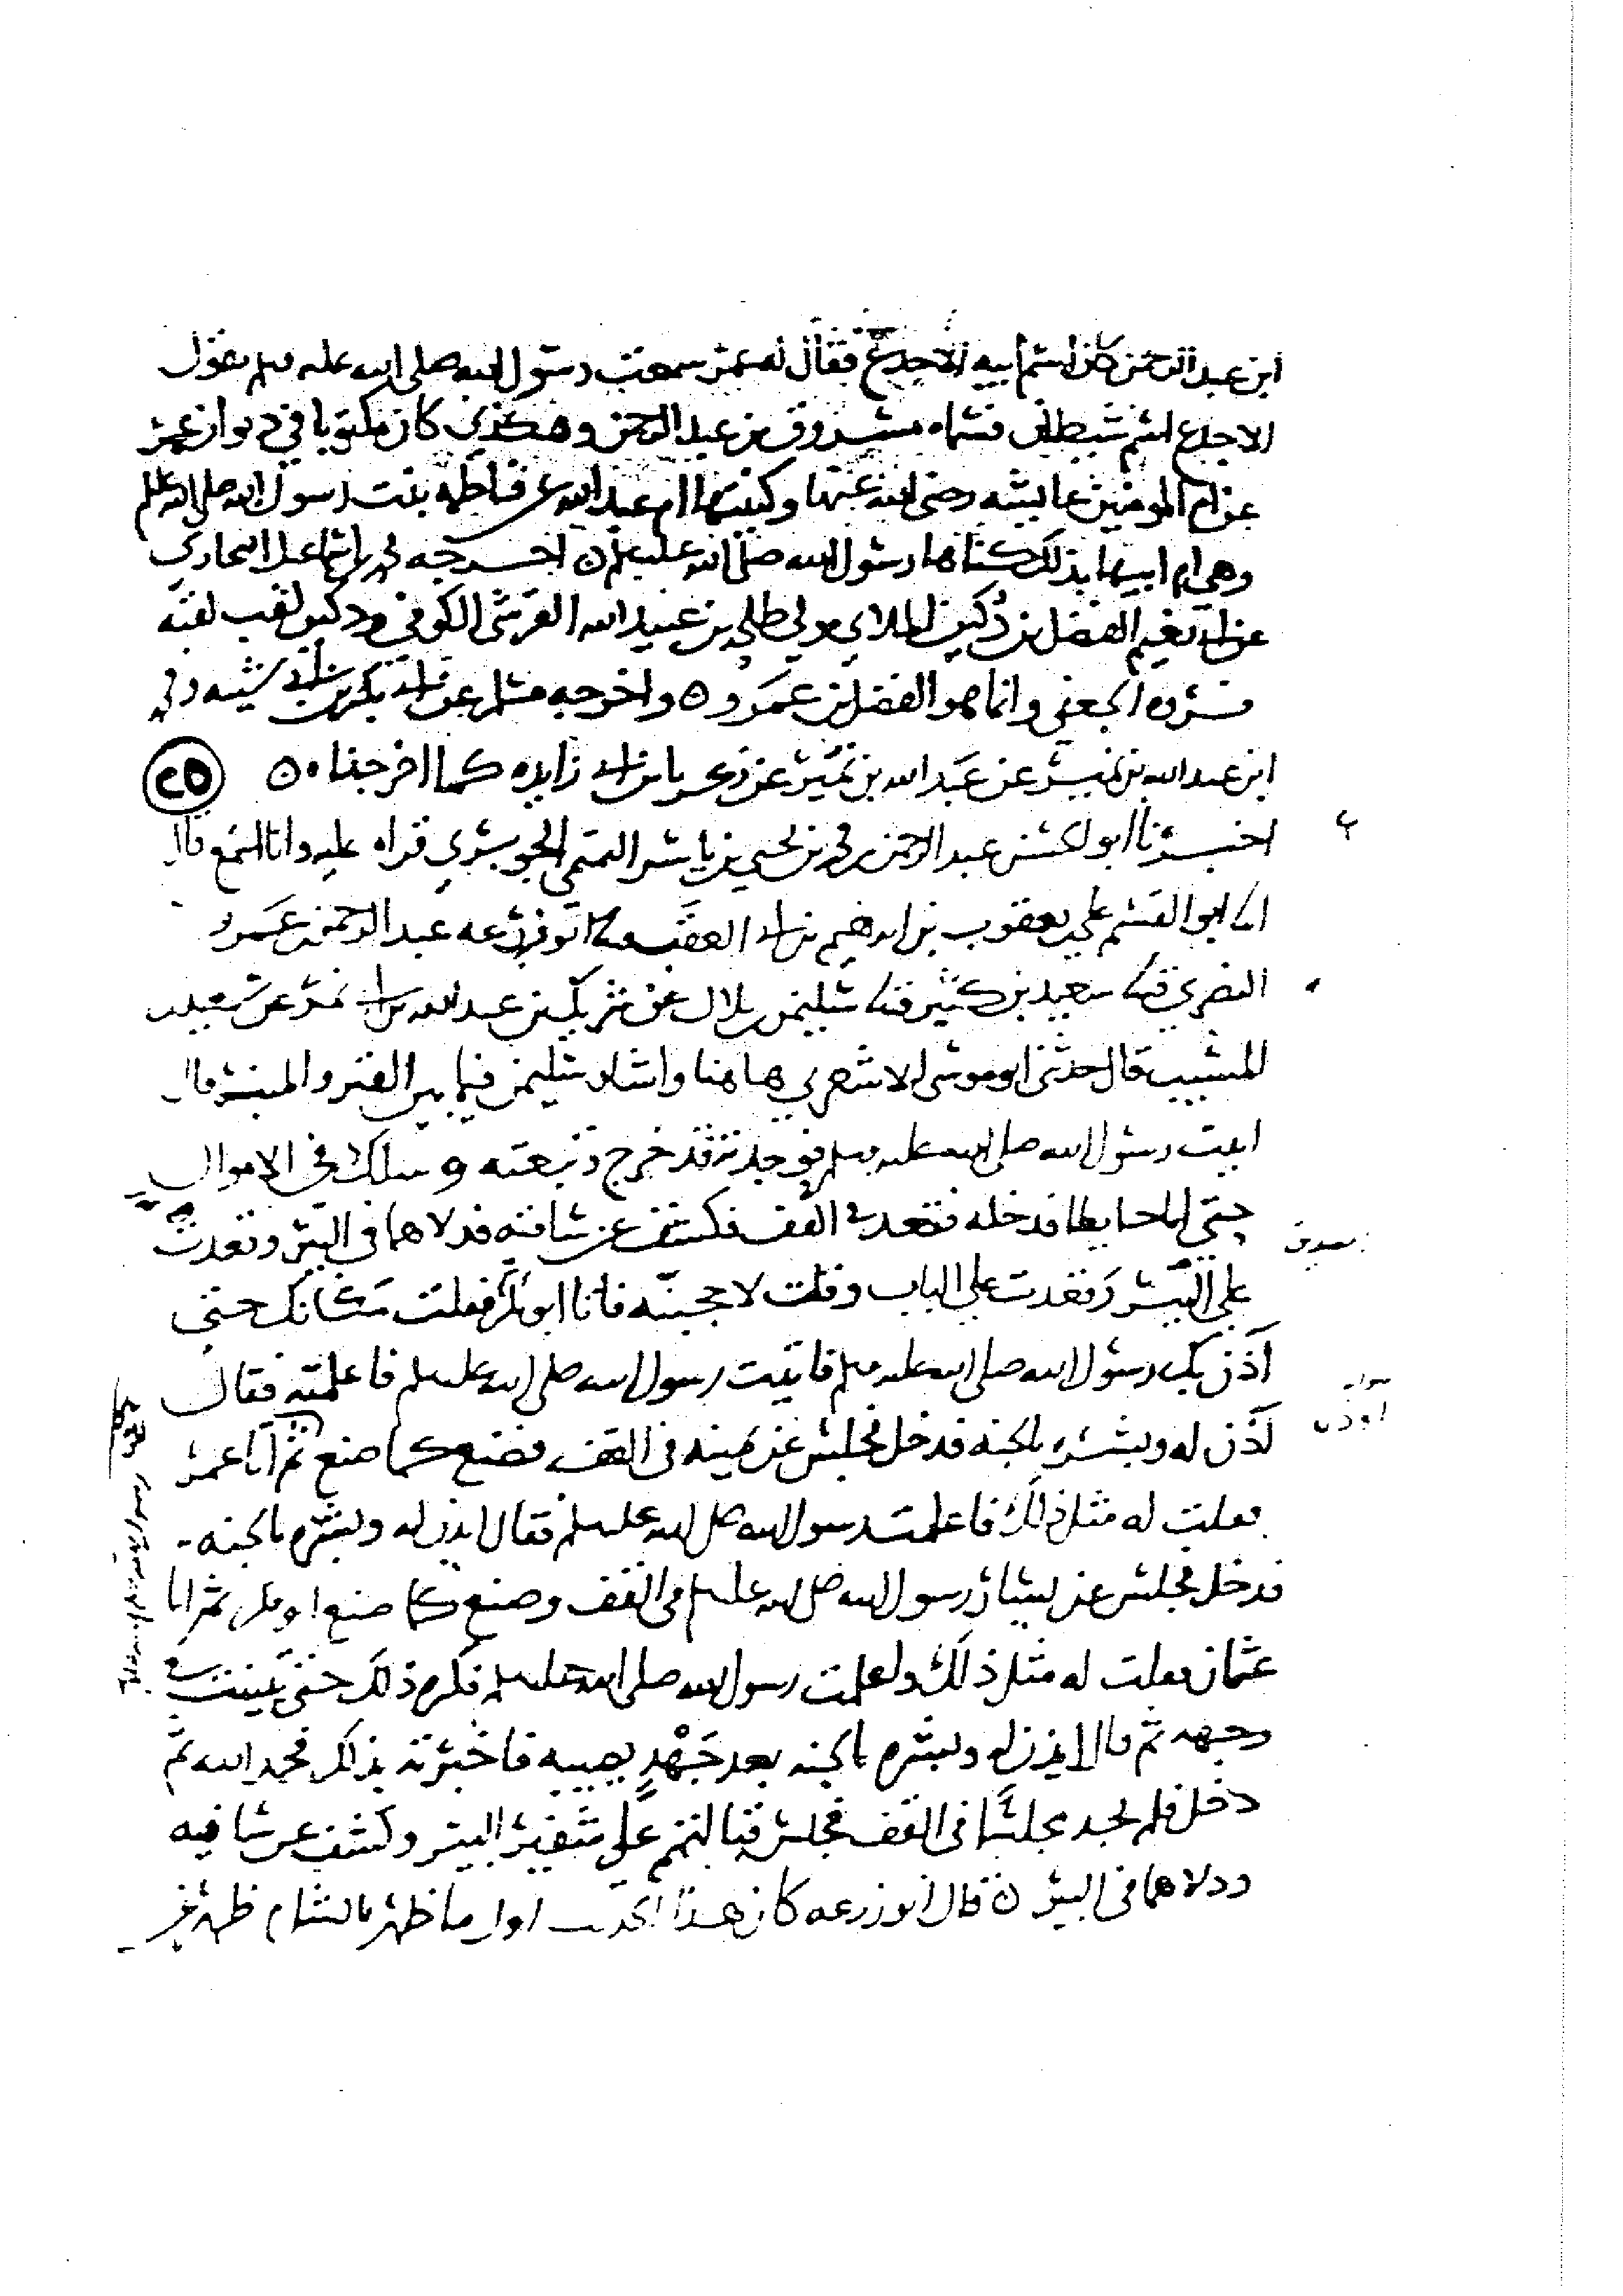 ابن عبد الرحمن كان اسم ابيه الاجدع فقال له عمر سمعت رسول الله صلى الله عليه وسلم يقول
الاجدع اسم شيطان فسماه مسروق بن عبد الرحمن وهكذي كان مكتوبا في ديوان عمر
عن ام المومنين عايشه رضي الله عنها وكنيتها ام عبد الله عن فاطمه بنت رسول الله صلى الله عليه وسلم
وهي ام ابيها بذلك كناها رسول الله صلى الله عليه وسلم ٥ اخرجه محمد بن اسماعيل البخاري
عن ابي نعيم الفضل بن دُكين الملاي مولى طلحه بن عبيد الله القرشي الكوفي ودكين لقب لقبه
فروه الجعفي وانما هو الفضل بن عمرو ٥ واخرجه مسلم عن ابي بكر بن ابي شيبه ومحمد
ابن عبد الله بن نمير عن عبد الله بن نمير عن زكريا بن ابي زايده كما اخرجناه ٥ ٢٥
اخبرنا ابو الحسن عبد الرحمن بن محمد بن يحيى بن ياسر التميمي الجوبري قراه عليه وانا اسمع قال
انا ابو القسم علي بن يعقوب بن ابرهيم بن ابي العقب نا ابو زرعه عبد الرحمن بن عمرو
النصري نا سعيد بن كثير نا سليمن بن بلال عن شريك بن عبد الله بن ابي نمر عن سعيد بن
المسيب قال حدثني ابو موسى الاشعري هاهنا واشار سليمن فيما بين القبر والمنبر قال
اتيت رسول الله صلى الله عليه وسلم فوجدته قد خرج وتبعته وسلك في الاموال
حتى اتا حايطا فدخله فقعد في القف فكشف عن ساقيه فدلاهما في البير وقعدت
على البير وقعدت على الباب وقلت لاحجبنه فاتا ابو بكر فقلت مكانك حتى
آذن بك رسول الله صلى الله عليه وسلم فاتيت رسول الله صلى الله عليه وسلم فاعلمته فقال
آذن له وبشره بالجنه فدخل فجلس عن يمينه في القف فصنع كما صنع ثم اتا عمر
فقلت له مثل ذلك فاعلمت رسول الله صلى الله عليه وسلم فقال ايذن له وبشره بالجنه
فدخل فجلس عن يسار رسول الله صلى الله عليه وسلم في القف وصنع كما صنع ابو بكر ثم اتا
عثمان فقلت له مثل ذلك واعلمت رسول الله صلى الله عليه وسلم فكره ذلك حتى تبينت في
وجهه ثم قال ايذن له وبشره بالجنه بعد جَهْدٍ يصيبه فاخبرته بذلك فحمد الله ثم
دخل فلم يجد مجلسًا في القف فجلس قبالتهم على شفير البير وكشف عن ساقيه
ودلاهما في البير ٥ قال ابو زرعه كان هذا الحديث اول ما ظهر بالشام ظهر عن